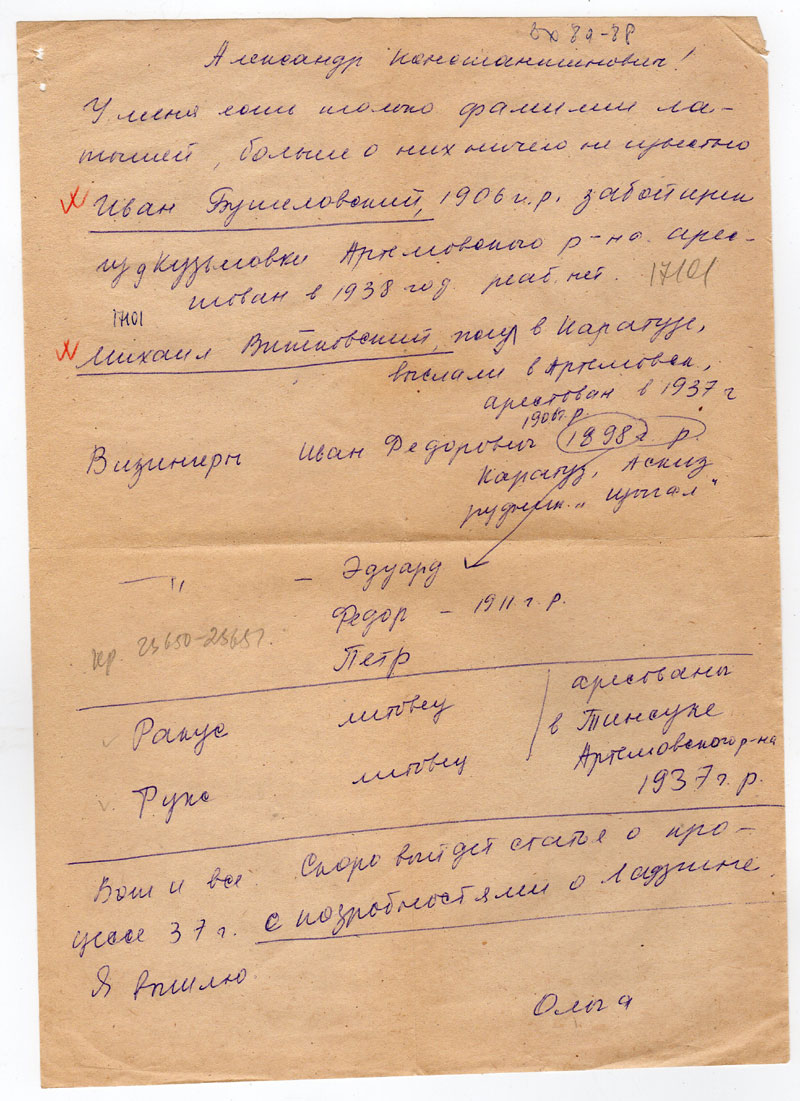 Вх 82-88
Александр Константинович!
У меня есть только фамилии ла-
тышей, больше о них ничего не известно
Иван Бушеловский, 1906 г.р. забойщик
из д Кузьмовки Артемовского р-на. арес-
тован в 1938 год реаб. нет. 17101
17101
Михаил Витковский, в Каратузе,
выслали в Артемовск,
арестован в 1937 г
1906 г.р.
Визингеры Иван Федорович 1898 г. р.
Каратуз, Аскиз
рудник
— " — Эдуард
Федор - 1911 г. р.
кр. 25650-25651.
Петр
Ракус литовец арестованы
в Тинсуке
Рукс литовец Артемовского р-на
1937 г. р.
Вот и все. Скоро выйдет статья о про-
цессе 37 г. с подробностями о Ладзине.
Я вышлю.
Ольга